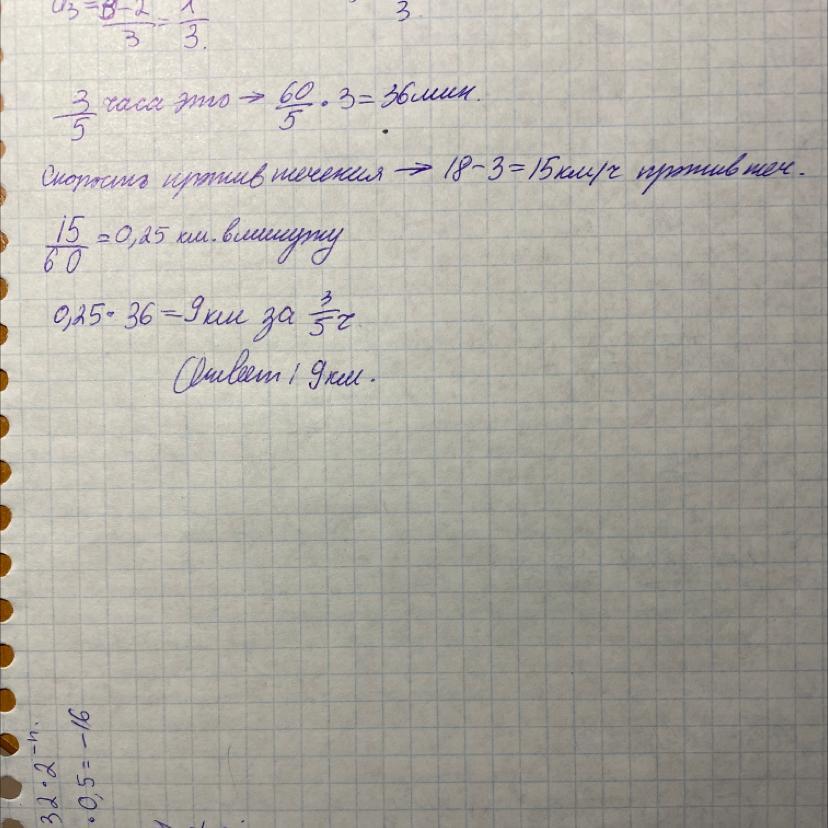 a₃ = 3-2/3 = 1/3.
3
3/5 часа это → 60/5 · 3 = 36 мин.
Скорость против течения → 18 - 3 = 15 км/ч против теч.
15/60 = 0,25 км. в минуту
0,25 · 36 = 9 км за 3/5 ч
Ответ: 9 км.
32 · 2⁻ⁿ.
· 0,5 = -16